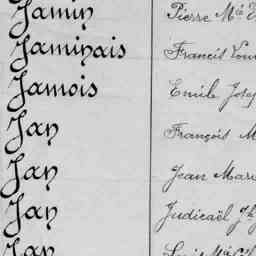 Jamin Pierre Mᵉ
Jaminais Francis Loui
Jamois Emile Jose
Jan François M
Jan Jean Mari
Jan Judicaël Jʰ
Jan Louis Mᵉ